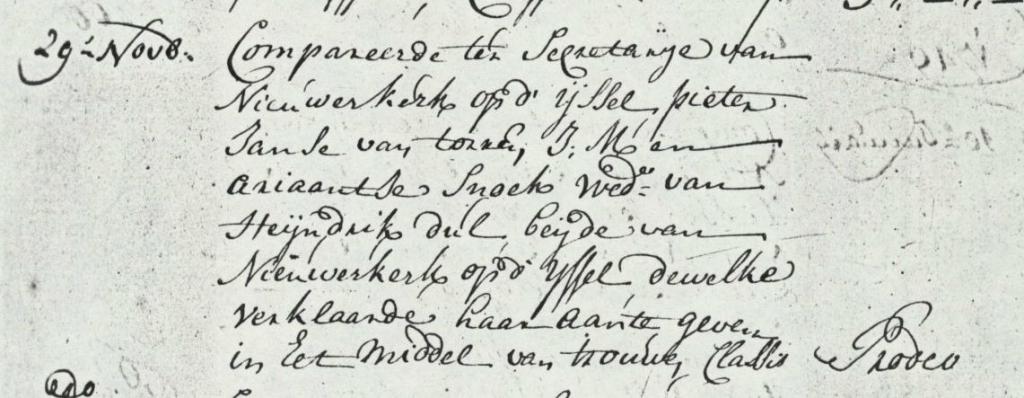 29e Novb: Compareerde ter Secretarije van
Nieuwerkerk op d' ijssel pieter
Janse van torren, J: M: en
ariaantse Snoek Wede: van
Heijndrik dul beijde van
Nieuwerkerk op d' ijssel dewelke
verklaarde haar aante geven
in Het Middel van trouwe, Classis Prodeo